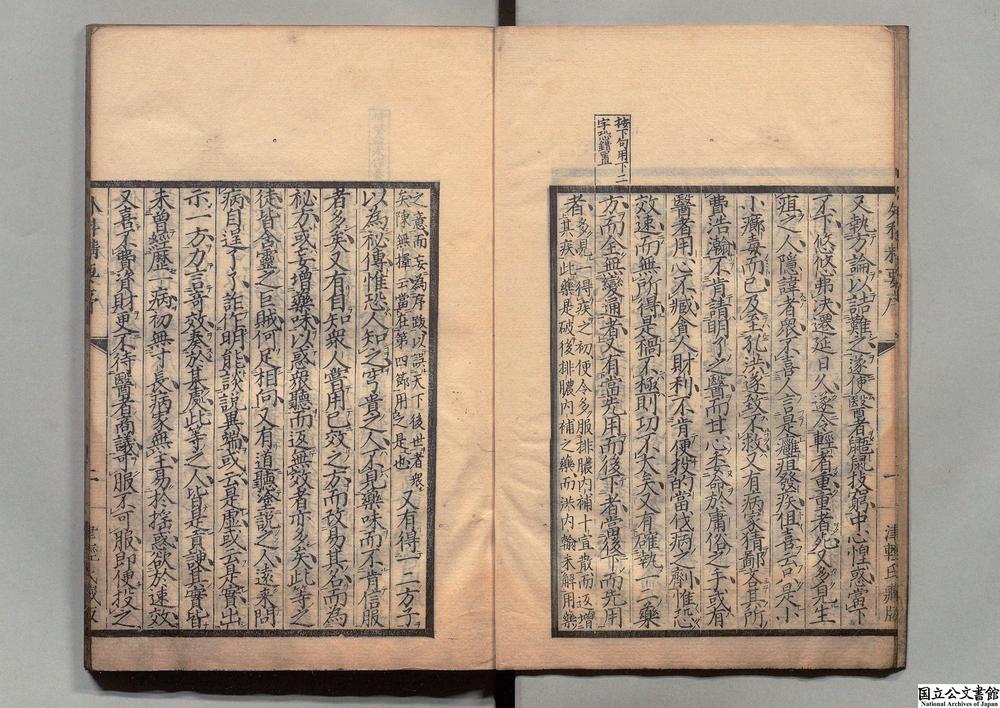 按下句用下二
字恐錯置
又執方論以詰難之遂使醫者鼯鼠技窮中心惶惑當下
不下悠悠弗決遷延日久遂令輕者重重者死又多見生
疽之人隱諱者衆不喜人言是癰疽發疾但喜云只是小
小癤毒而已及至孔洪遂致不救又有病家猜鄙吝其所
費浩瀚不肯請明了之醫而甘心委命於庸俗之手或有
醫者用心不臧貪人財利不肯便投的當伐病之劑惟恐
效速而無所得是禍不極則功不大矣又有確執一二藥
方而全無變通者又有當先用而後下者當後下而先用
者多見一得疾之初便令多服排膿內補十宣散而返增
其疾此藥是破後排膿內補之藥而洪內翰未解用藥
一
之意而妄為序跋以誤天下後世者衆
矣陳無擇云當在第四節用之是也又有得一二方子
以為秘傳惟恐人知之穹貴之人不見藥味而不肯信服
者多矣又有自知衆人嘗用已效之方而改易其名而為
秘方或妄增藥味以惑衆聽而返無效者亦多矣此等之
徒皆含靈之巨賊何足相向又有道聽塗說之人遠來問
病自逞了了詐作明能談說異端或云是虛或云是實出
示一方力言奇效奏於某處此等之人皆是貢諛其實皆
未曾經歷一病初無寸長病家無主易於搖惑欲於速效
又喜不費資財更不待醫者商議可服不可服即便投之
二
国立公文書館
National Archives of Japan